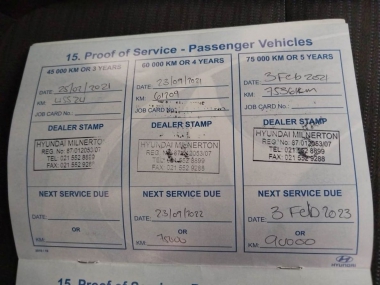 15. Proof of Service - Passenger Vehicles
45 000 KM OR 3 YEARS
DATE: 25/02/2021
KM: 45524
JOB CARD No.:
DEALER STAMP
HYUNDAI MILNERTON
REG. No: 67.012053/07
TEL: 021 552 8899
FAX: 021 552 9288
NEXT SERVICE DUE
DATE:
OR
KM:
60 000 KM OR 4 YEARS
DATE: 23/09/2021
KM: 61709
JOB CARD No.:
DEALER STAMP
HYUNDAI MILNERTON
REG. No: 67.012053/07
TEL: 021 552 8899
FAX: 021 552 9288
NEXT SERVICE DUE
DATE: 23/09/2022
OR
KM:
75 000 KM OR 5 YEARS
DATE: 3 Feb 2021
KM:
JOB CARD No.:
DEALER STAMP
HYUNDAI MILNERTON
REG. No: 67.012053/07
TEL: 021 552 8899
FAX: 021 552 9288
NEXT SERVICE DUE
DATE: 3 Feb 2023
OR
KM: 90000
HYUNDAI